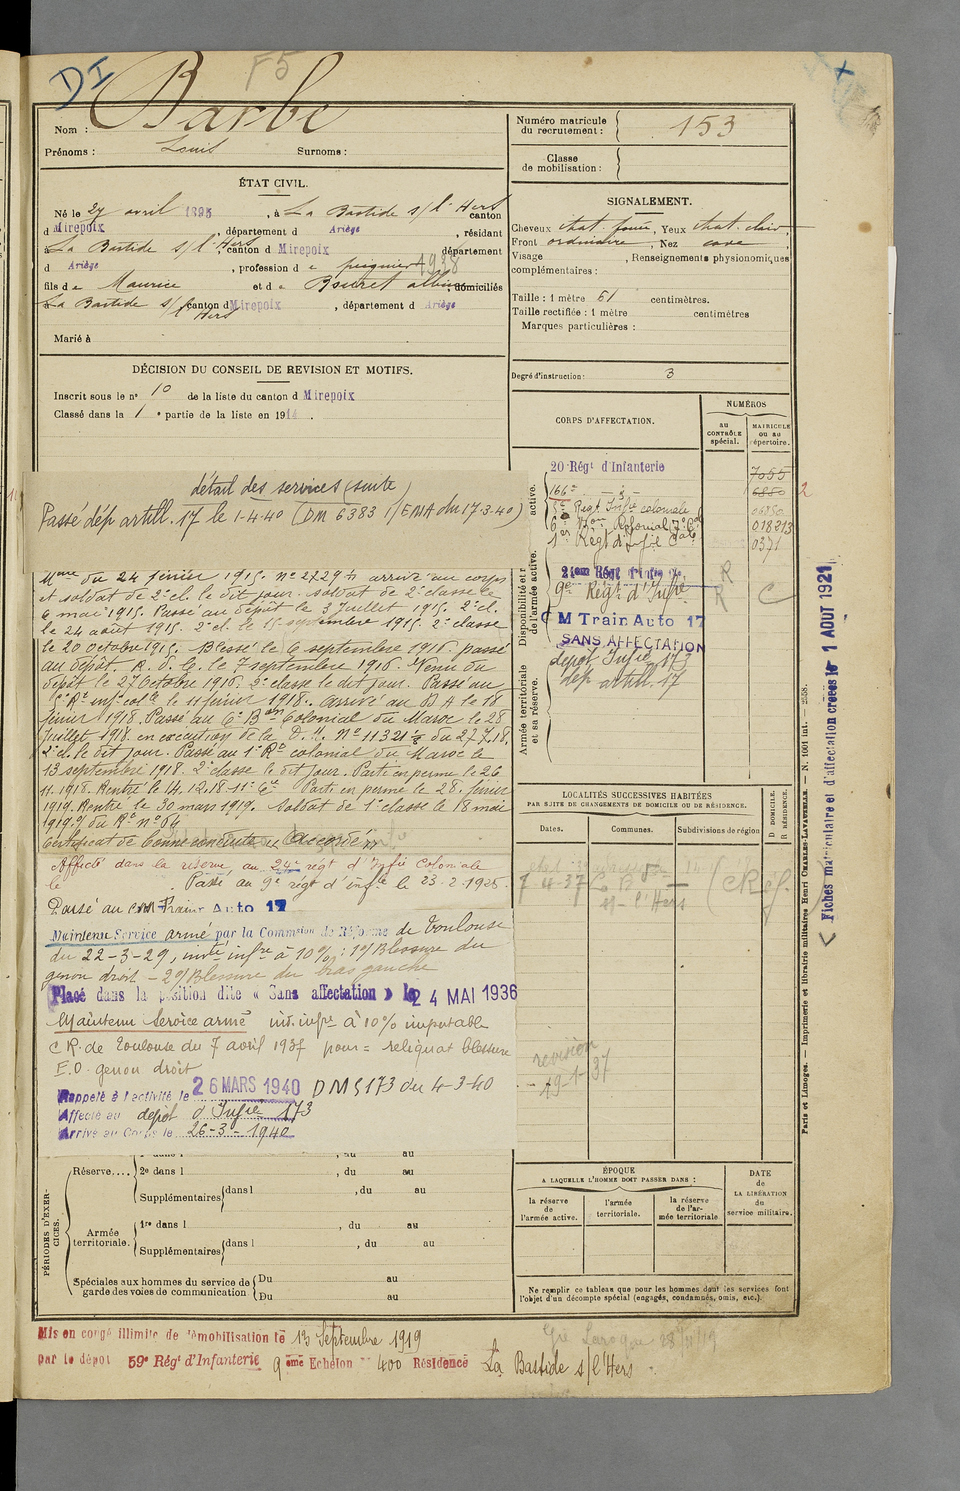 DI
F5
Nom : Barbe
Prénoms : Louis Surnoms :
ÉTAT CIVIL.
Né le 27 avril 1895, à La Bastide s/l'Hers canton
d Mirepoix département d Ariège, résidant
à La Bastide s/l'Hers, canton d Mirepoix département
d Ariège, profession d e peignier 1938
fils d e Maurice et d e Bouret domiciliés
La Bastide s/l'Hers canton d Mirepoix, département d Ariège
Marié à
DÉCISION DU CONSEIL DE REVISION ET MOTIFS.
Inscrit sous le n° 10 de la liste du canton d Mirepoix
Classé dans la 1e partie de la liste en 1914.
détail des services (suite)
Passé dép artill. 17 le 1-4-40 (DM 6383 1/EMA du 17-3-40)
du 24 février 1915. n° 2729 arrivé au corps
et soldat de 2e cl. le dit jour. soldat de 2e classe le
6 mai 1915. Passé au dépôt le 3 Juillet 1915. 2e cl.
le 24 août 1915. 2e cl. le 15 septembre 1915. 2e classe
le 20 octobre 1915. Blessé le 6 septembre 1916. passé
au dépôt R. d. C. le 7 septembre 1916. Venu du
dépôt le 27 Octobre 1916. 2e classe le dit jour. Passé au
5e Rt infie colle le 11 février 1918. arrivé au D A le 18
février 1918. Passé au 6e Bon Colonial du Maroc le 28
Juillet 1918. en exécution de la D. M. N° 11321 du 27.7.18.
2e cl. le dit jour. Passé au 1er Rt colonial du Maroc le
13 septembre 1918. 2e classe le dit jour. Parti en perme le 26
11.1918. Rentré le 14.12.18 11e Cie Parti en perme le 28. février
1919. Rentré le 30 mars 1919. Soldat de 1e classe le 18 mai
1919 O/ du Rt n° 64
Certificat de bonne conduite Accordé
Affecté dans la réserve au 24e régt d'Infie Coloniale
le Passé au 9e régt d'infie le 23-2-1925.
Passé au CM Train Auto 17
Maintenu Service armé par la Commsion de Réforme de Toulouse
du 22-3-29, invté infre à 10%: 1°/ Blessure du
genou droit - 2°/ Blessure du bras gauche
Placé dans la position dite « Sans affectation » le 24 MAI 1936
Maintenu Service armé inv. infre à 10% imputable
C R. de Toulouse du 7 avril 1937 pour = reliquat blessure
E.O. genou droit
Rappelé à l'activité le 26 MARS 1940 DM 5173 du 4-3-40
Affecté au dépôt d'Infie 173
Arrivé au Corps le 26-3-1940
PÉRIODES D'EXERCICES.
Réserve.... 2e dans l , du au
Supplémentaires dans l , du au
Armée territoriale. 1re dans l , du au
Supplémentaires dans l , du au
Spéciales aux hommes du service de garde des voies de communication Du au
Du au
Mis en congé illimité de démobilisation le 13 Septembre 1919
par le dépôt 59e Régt d'Infanterie 9ème Echelon n° 400 Résidence La Bastide s/l'Hers
Numéro matricule du recrutement : 153
Classe de mobilisation :
SIGNALEMENT.
Cheveux chat. foncé, Yeux chat. clair,
Front ordinaire, Nez cave,
Visage , Renseignements physionomiques
complémentaires :
Taille : 1 mètre 61 centimètres.
Taille rectifiée : 1 mètre centimètres
Marques particulières :
Degré d'instruction : 3
CORPS D'AFFECTATION.
NUMÉROS
AU CONTRÔLE spécial.
MATRICULE OU AU répertoire.
active.
Disponibilité et r de l'armée active.
Armée territoriale et sa réserve.
20 Régt d'Infanterie 7055
166e - d° - 6880 2
5e Régt Infie coloniale 06350
6e Bon Colonial 018213
1er Régt d'Infie Cale 0371
24em Régt Infie
9e Régt d'Infie
R
R C
CM Train Auto 17
SANS AFFECTATION
dépôt Infie 173
dép artill. 17
LOCALITÉS SUCCESSIVES HABITÉES
PAR SUITE DE CHANGEMENTS DE DOMICILE OU DE RÉSIDENCE.
Dates. Communes. Subdivisions de région
D. DOMICILE.
R. RÉSIDENCE.
7-4-37 La B (CRéf.)
s/- l'Hers
revision
- 19-1-37
ÉPOQUE
A LAQUELLE L'HOMME DOIT PASSER DANS :
la réserve de l'armée active.
l'armée territoriale.
la réserve de l'armée territoriale
DATE de LA LIBÉRATION du service militaire.
Ne remplir ce tableau que pour les hommes dont les services font
l'objet d'un décompte spécial (engagés, condamnés, omis, etc.).
Laroque 28/11/19
Paris et Limoges. — Imprimerie et librairie militaires Henri CHARLES-LAVAUZELLE. — N. 1001 int. — 2558.
Fiches matriculaire et d'affectation créées le 1 AOUT 1921